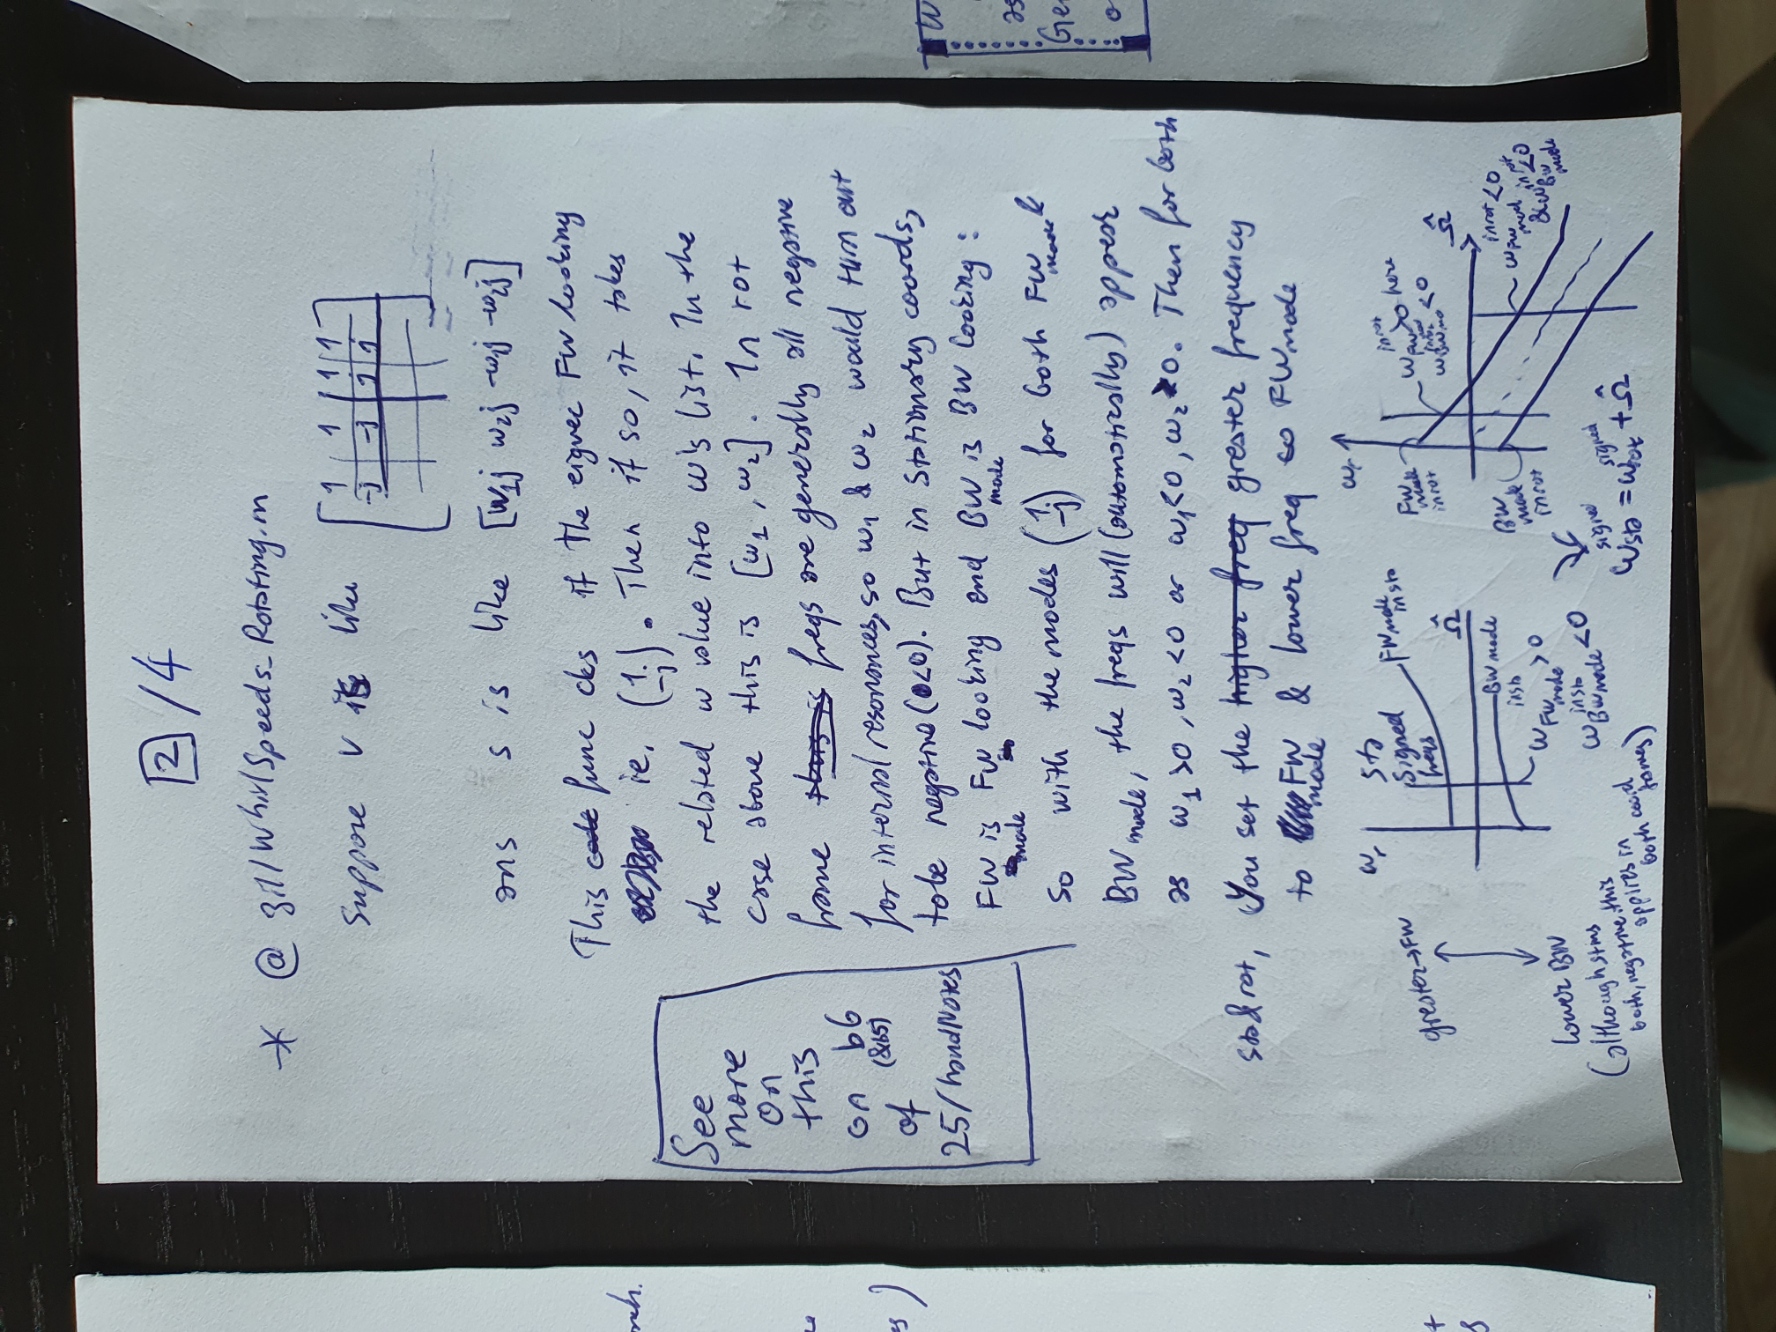 2 / 4
* @ gil/WhirlSpeeds_Rotating.m
Suppose v is like [1 1 1 1
-j -j j j]
ans s is like [ω1j ω2j -ω1j -ω2j]
This code func cks if the eigvec FW looking
ie. (1 -j). Then if so, it takes
the related w value into w's list. In the
case above this is [ω1, ω2]. In rot
frame this is freqs are generally all negative
for internal resonances, so ω1 & ω2 would turn out
to be negative (<0). But in stationary coords,
FW mode is FW looking end BW mode is BW looking:
So with the modes (1 -j) for both FW mode &
BW mode, the freqs will (automatically) appear
as ω1>0, ω2<0 or ω1<0, ω2>0. Then for both
sta&rot, You set the higher freq greater frequency
to FW mode & lower freq to FW mode
See
more
on
this
on b6
(&b5)
of
25/handNotes
greater→FW
lower BW
(although stms
both, negative, this
applies in
both coord
frames)
ωr
sta
signed
freqs
FW mode
in sta
Ω̂
BW mode
insta
ω FW mode insta >0
ω BW mode insta <0
ωr
FW
mode
in rot
ω FW inrot >0 here
<0
Ω̂
BW
mode
in rot
ω FW mod inrot <0
& ω BW mode inrot <0
ω sta signed = ω rot signed + Ω̂
mh.
s)
W
as
Ge
o